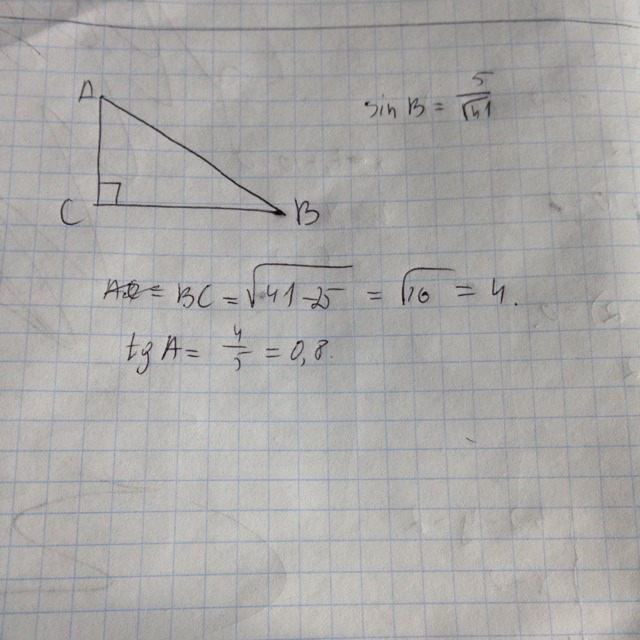 A
sin B = 5/√41
C
B
BC = √41-25 = √16 = 4.
tg A = 4/5 = 0,8.